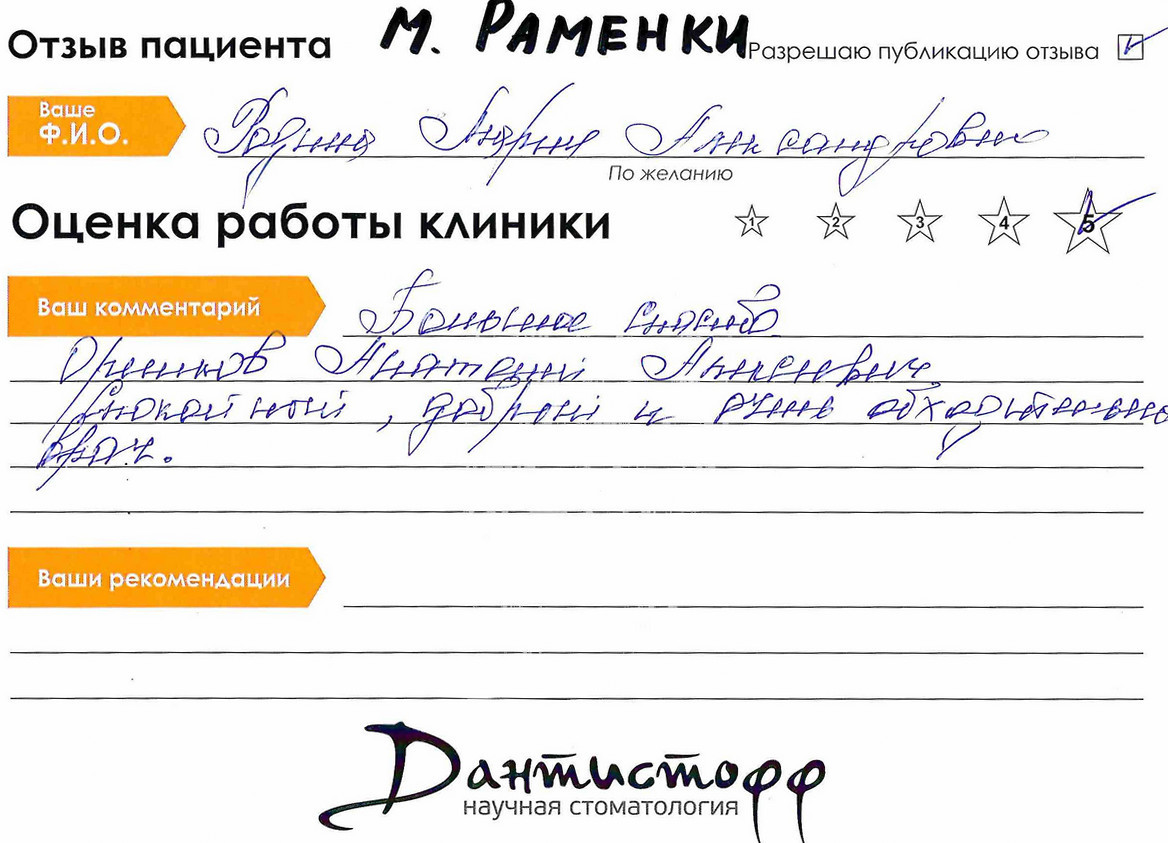 Отзыв пациента
м. РАМЕНКИ
Разрешаю публикацию отзыва
Ваше
Ф.И.О.
Александровна
По желанию
Оценка работы клиники
1 2 3 4 5
Ваш комментарий
Большое спасибо
Анатолий Алексеевич
Спокойный, добрый и очень обходительный
врач.
Ваши рекомендации
Дантистофф
научная стоматология